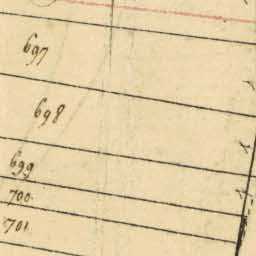 697
698
699
700
701